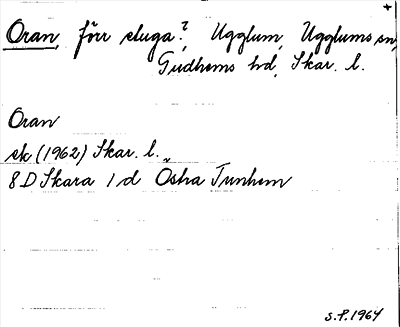 Oran, förr stuga?, Ugglum, Ugglums sn,
Gudhems hd, Skar. l.
Oran
ek (1962) Skar. l.
8 D Skara 1 d Östra Tunhem
S.P. 1964